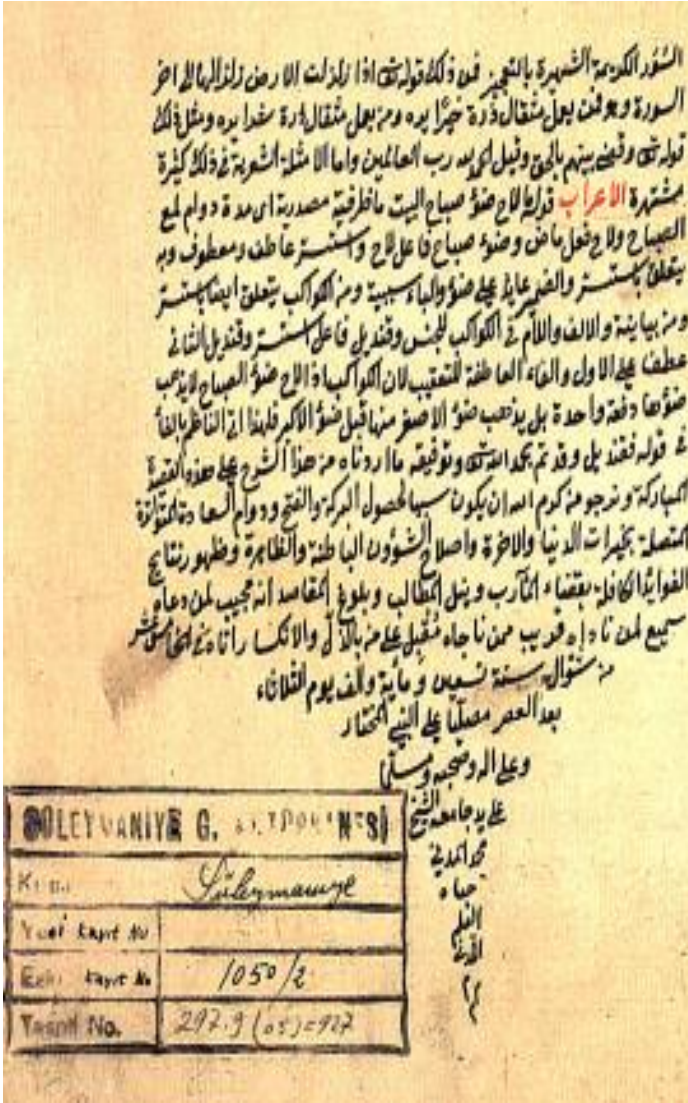 السور الكريمة الشهيرة بالتعجيز فمن ذلك قوله تعالى اذا زلزلت الارض زلزالها الى اخر
السورة وهو فمن يعمل مثقال ذرة خيرا يره ومن يعمل مثقال ذرة شرا يره ومثل ذلك
قوله تعالى وقضى بينهم بالحق وقيل الحمد لله رب العالمين واما الامثلة الشعرية في ذلك كثيرة
مشتهرة الاعراب قوله ما لاح ضوء صباح البيت ما ظرفية مصدرية اى مدة دوام لمع
الصباح ولاح فعل ماض وضوء صباح فاعل لاح واستتر عاطف ومعطوف وبه
يتعلق باستتر والضمير عايد على ضوء والباء سببية ومن الكواكب يتعلق ايضا باستتر
ومن بيانية والالف واللام في الكواكب للجنس وقنديل فاعل استتر وقنديل الثاني
عطف على الاول والفاء العاطفة للتعقيب لان الكواكب اذا لاح ضوء الصباح لا يذهب
ضوءها دفعة واحدة بل يذهب ضوء الاصغر منها قبل ضوء الاكبر فلهذا اتى الناظم بالفاء
في قوله فقنديل وقد تم بحمد الله تعالى وتوفيقه ما اردناه من هذا الشرح على هذه القصيدة
المباركة ونرجو من كرم الله ان يكون سببا لحصول البركة والفتح ودوام السعادة المتواترة
المتصلة بخيرات الدنيا والاخرة واصلاح الشؤون الباطنة والظاهرة وظهور نتايج
الفوايد الكافلة بقضاء المآرب ونيل المطالب وبلوغ المقاصد انه مجيب لمن دعاه
سميع لمن ناداه قريب ممن ناجاه مقبل على من بالذل والانكسار اتاه في الخامس عشر
من شوال سنة تسعين ومأية والف يوم الثلاثاء
بعد العصر مصليا على النبي المختار
وعلى اله وصحبه ومسلما
على يد جامعه الشيخ
محمد المدني
حماه
SÜLEYMANİYE G. KÜTÜPHANESİ
Kısmı Süleymaniye
Yeni Kayıt No
Eski Kayıt No 1050/2
Tasnif No. 297.9 (05)=927